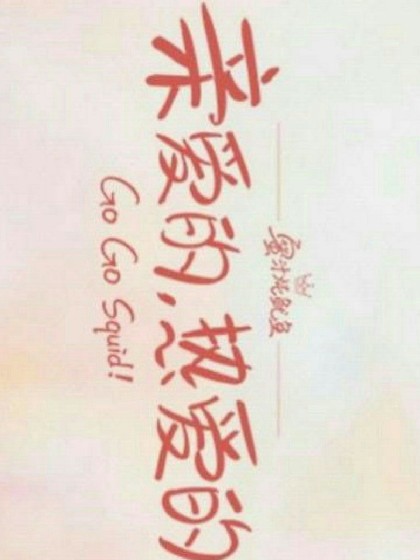 蜜汁炖鱿鱼
亲爱的,热爱的
Go Go Squid!